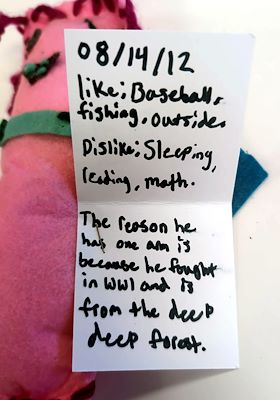 08/14/12
like; Baseball,
fishing, outside.
Dislike; Sleeping,
reading, math.
The reason he
has one arm is
because he fought
in WW1 and is
from the deep
deep forest.